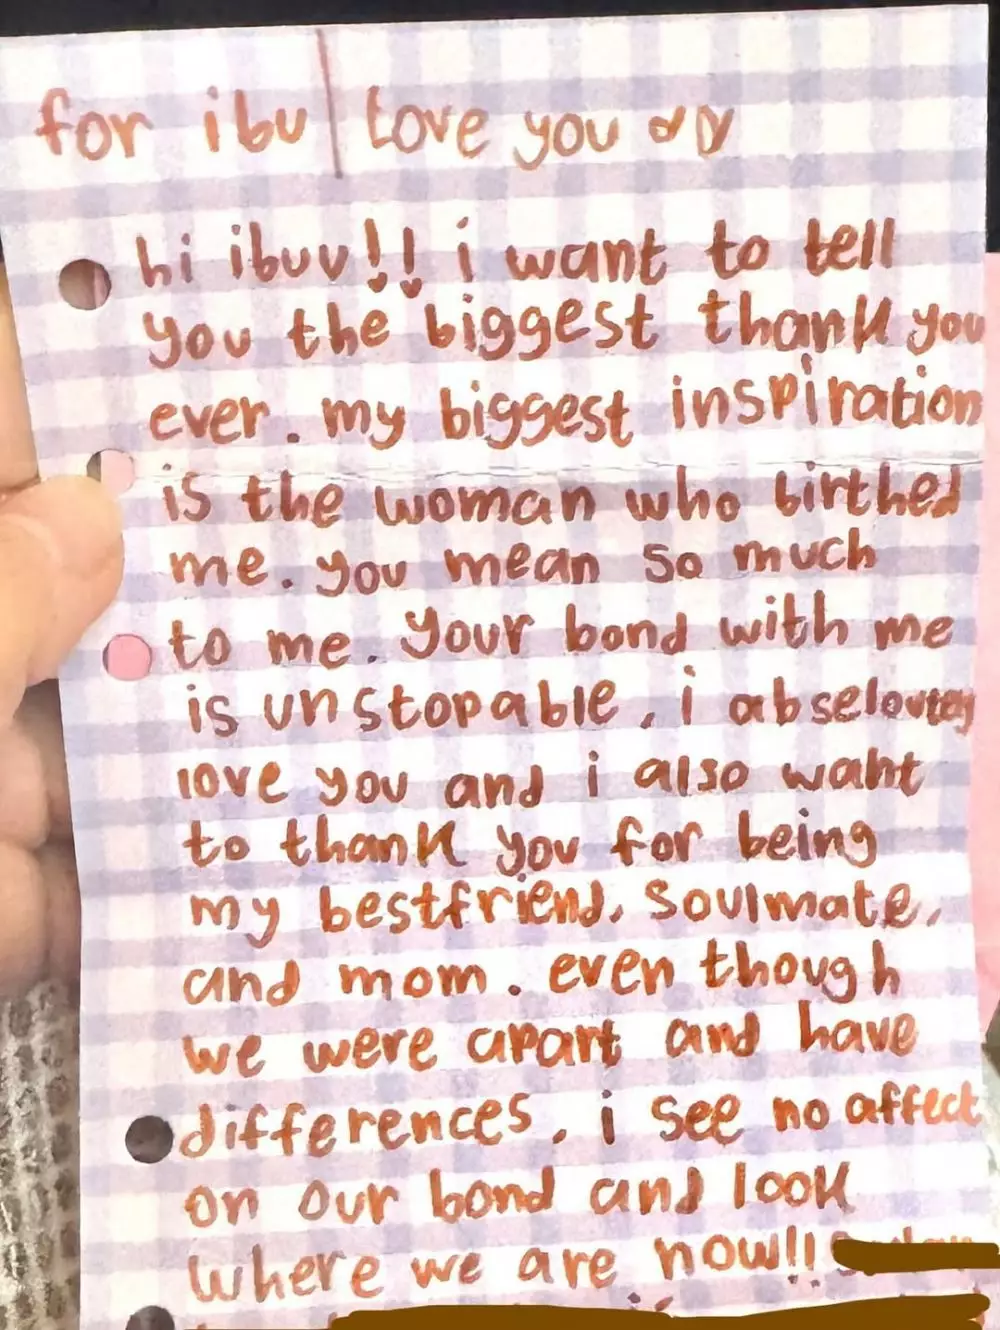 for ibu | love you
hi ibuu!! i want to tell
you the biggest thank you
ever. my biggest inspiration
is the woman who birthed
me. you mean so much
to me. Your bond with me
is unstopable, i abseloutey
love you and i also want
to thank you for being
my bestfriend, soulmate,
and mom. even though
we were apart and have
differences, i see no affect
on our bond and look
where we are now!!